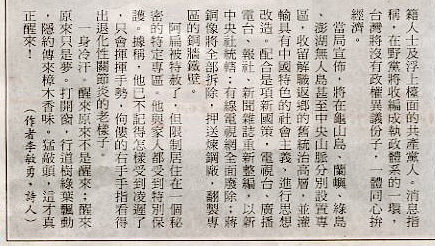 籍人士及浮上檯面的共產黨人。消息指
稱，在野黨將收編成執政體系的一環，
台灣將沒有政權異議份子，一體同心拚
經濟。
當局宣佈，將在龜山島、蘭嶼、綠島
、澎湖無人島甚至中央山脈分別設置專
區，收留解職返鄉的舊統治高層，並灌
輸具有中國特色的社會主義，進行思想
改造。配合是項新國策，電視台、廣播
電台、報社、新聞雜誌重新整編，以新
中央社統轄；有線電視網全面廢除；蔣
銅像將全部拆除，押送煉鋼廠，翻製專
區的銅牆鐵壁。
阿扁被特赦了，但限制居住在一個秘
密的特定專區。他與家人都受到特別保
護。據稱，他已不記得怎樣受到凌遲了
，只會揮揮手勢，佝僂的右手手指看得
出退化性關節炎的老樣子。
一身冷汗，醒來原來不是醒來；醒來
原來只是夢。打開窗，行道樹綠葉飄動
，隱約傳來樟木香味。猛敲頭，這才真
正醒來！
（作者李敏勇，詩人）